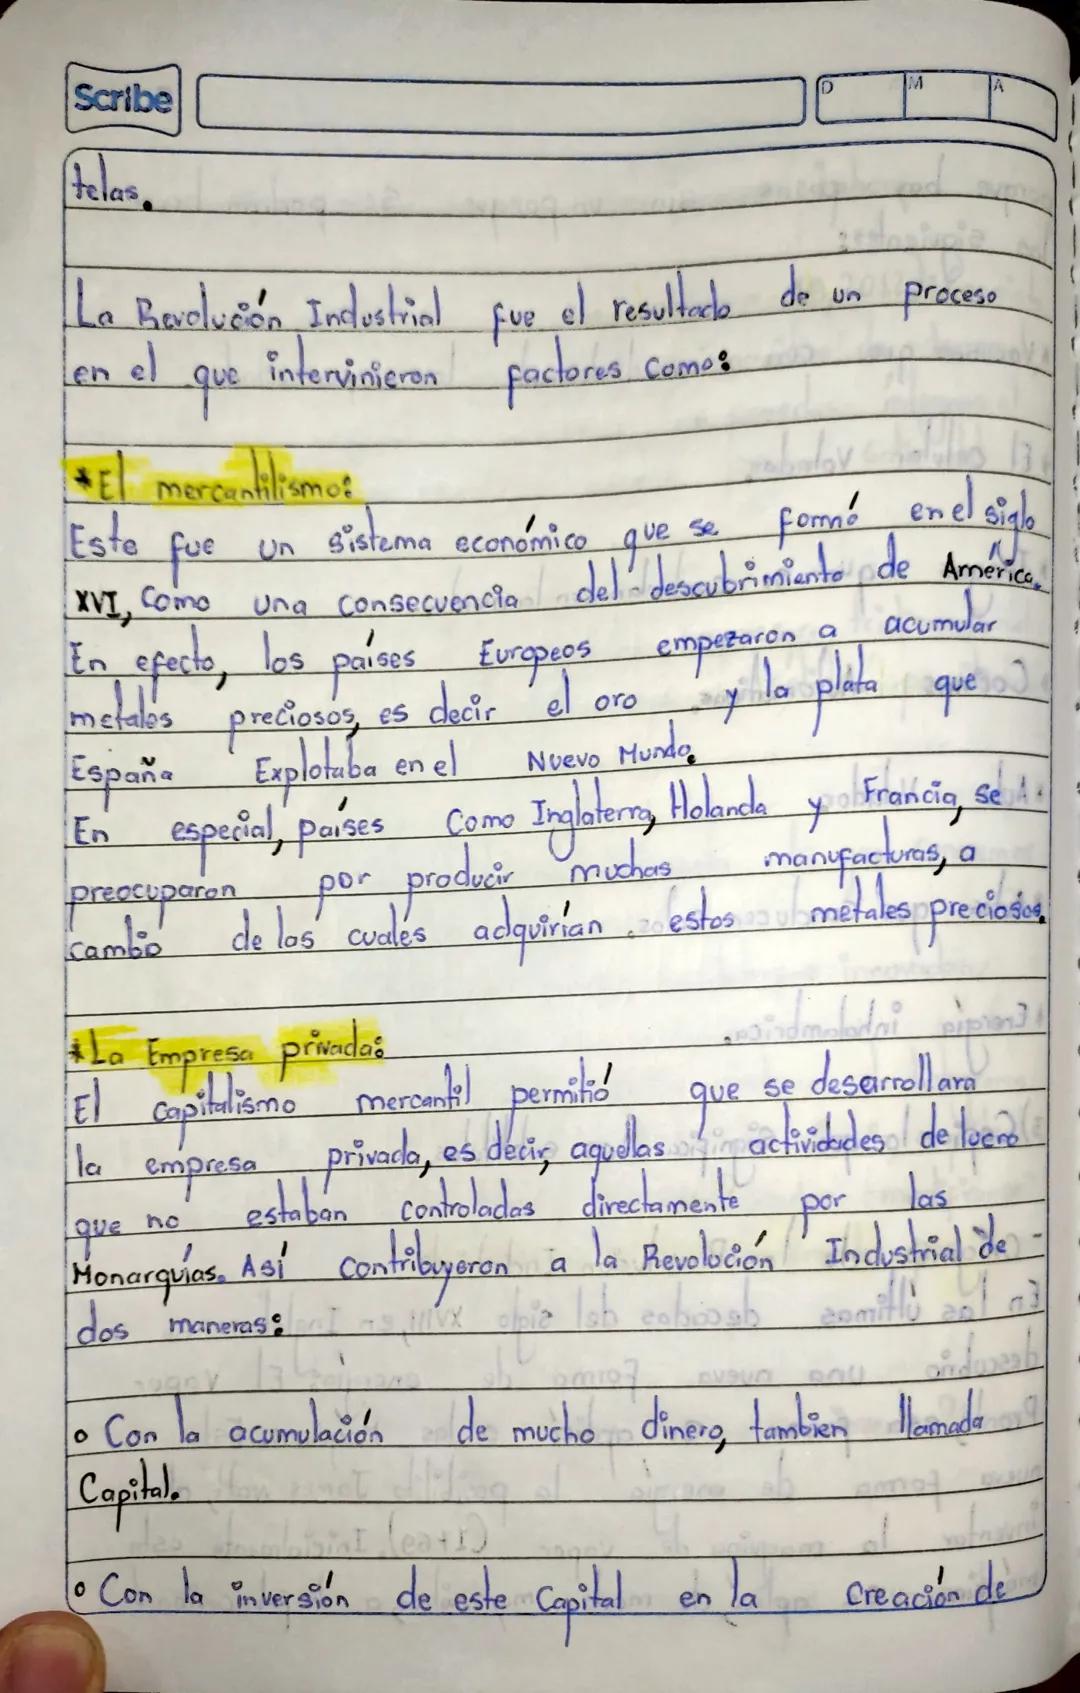 Scribe
D M A
telas.
La Revolución Industrial fue el resultado de un proceso
en el que intervinieron factores como:
*El mercantilismo:
Este fue un sistema económico que se formó en el siglo
XVI, Como una consecuencia del descubrimiento de América.
En efecto, los países Europeos empezaron a acumular
metales preciosos, es decir el oro y la plata que
España Explotaba en el Nuevo Mundo.
En especial, países Como Inglaterra, Holanda y Francia, se
preocuparon por producir muchas manufacturas, a
cambio de las cuales adquirían estos metales preciosos.
*La Empresa privada:
El capitalismo mercantil permitió que se desarrollara
la empresa privada, es decir, aquellas actividades de lucro
que no estaban controladas directamente por las
Monarquías. Así contribuyeron a la Revolución Industrial de
dos maneras:
o Con la acumulación de mucho dinero, tambien llamada
Capital.
o Con la inversión de este Capital en la Creación de